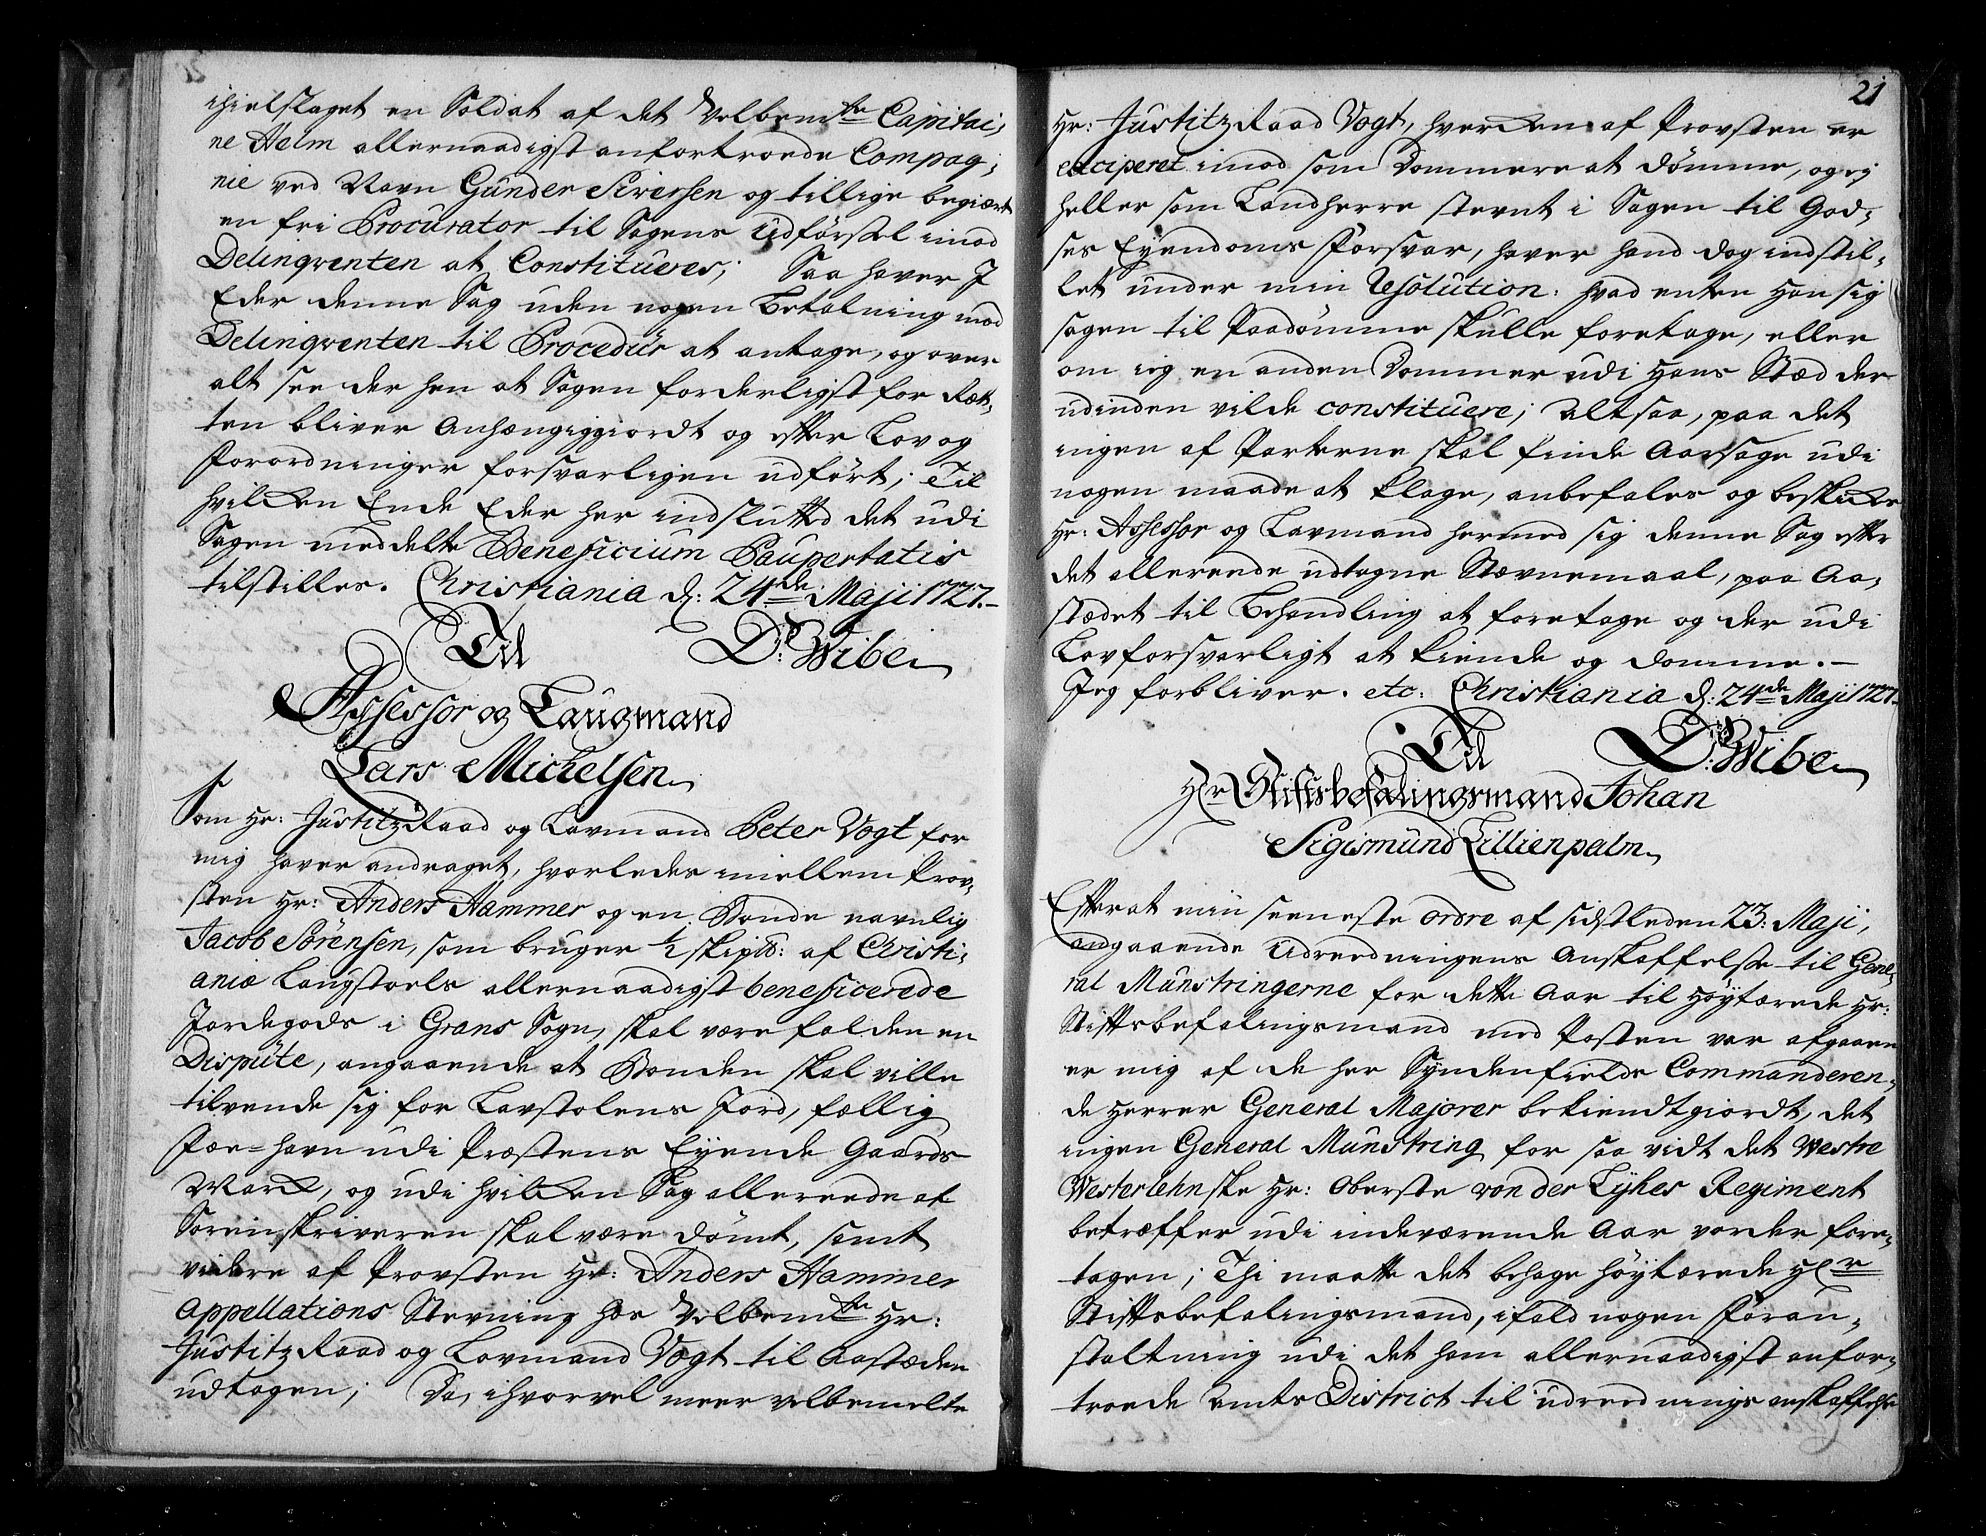 ihielslaget en Soldat af det Velbem:te Capitai,
ne Helm allernaadigst anfortroede Compag,
nie ved Navn Gunder Siversen og tillige begiært
en fri Procurator til Sagens Udförsel imod
Delinqventen at Constitueres; Saa haver I
Eder denne Sag uden nogen Betalning mod
Delinqventen til Procedur at antage, og over
alt see der hen at Sagen forderligst for Ræt,
ten bliver Anhængiggiordt og efter Lov og
Forordninger forsvarligen udfört; Til
hvilken Ende Eder her indslutted det udi
Sagen meddelte Beneficium Paupertatis
tilstilles. Christiania d: 24de Maji 1727.
Til D: Wibe
Assessor og Laugmand
Lars Michelsen
Som Hr: JustitzRaad og Lavmand Peter Vogt for
mig haver andraget, hvorledes imellem Prov,
sten Hr: Anders Hammer og en Bonde navnlig
Jacob Sörensen, som bruger 1/2 skipd: af Christi,
aniæ Laugstoels allernaadigst beneficerede
Jordegods i Grans Sogn, skal være falden en
Dispute, angaaende at Bonden skal ville
tilvende sig for Lavstolens Jord, fællig
Fæe-havn udi Præstens Eyende Gaards
Mark, og udi hvilken Sag allereede af
Sorenskriveren skal være dömt, samt
videre af Provsten Hr: Anders Hammer
Appellations Stevning hos Velbem:te Hr:
JustitzRaad og Lavmand Vogt til Aastæden
udtagen; Da, ihvorvel meer velbemelte
21
Hr: JustitzRaad Vogt, hverken af Provsten er
exciperet imod som Dommere at dömme, og ej
heller som Landherre stevnt i Sagen til God,
ses Eyendoms Forsvar, haver hand dog indstil,
let under min Resolution: hvad enten Han sig
sagen til Paadömme skulle foretage, eller
om jeg en anden Dommer udi Hans Stæd der
udinden vilde constituere; Altsaa, paa det
ingen af Parterne skal finde Aarsage udi
nogen maade at klage, anbefales og beskikkes
Hr: Assessor og Lavmand hermed sig denne Sag efter
det allereede udtagne Stævnemaal, paa Aa,
stædet til Behandling at foretage og der udi
Lovforsvarligt at kiende og domme.
Jeg forbliver. etc: Christiania d: 24de Maji 1727.
Til D: Wibe
Hr Stiftsbefalingsmand Johan
Sigismund Lillienpalm
Efterat min seeneste ordre af sidstleden 23: Maji,
angaaende Udreedningens Anskaffelse til Gene,
ral Munstringerne for dette Aar til Höytærede Hr:
Stiftsbefalingsmand med Posten var afgaaen
er mig af de her Syndenfields Commanderen,
de Herrer General Majorer bekiendtgiordt, det
ingen General Munstring for saa vidt det Westre
Westerlehnske Hr: Oberste von der Lyhes Regiment
betræffer udi indeværende Aar vorder fore,
tagen; Thi maatte det behage höytærede Hr
Stiftsbefalingsmand, ifald nogen Foran,
staltning udi det ham allernaadigst anfor,
troede Amts District til udreednings anskaffelse